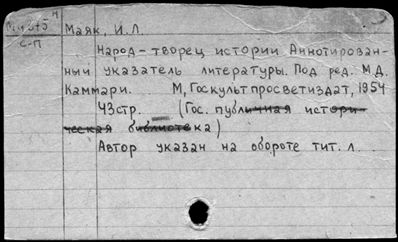 Маяк, И.Л.
С-П
Народ-творец истории Аннотирован-
ный указатель литературы. Под ред. М.Д.
Каммари. М, Госкультпросветиздат, 1954
43стр. (Гос. публичная истори-
ческая библиотека)
Автор указан на обороте тит. л.